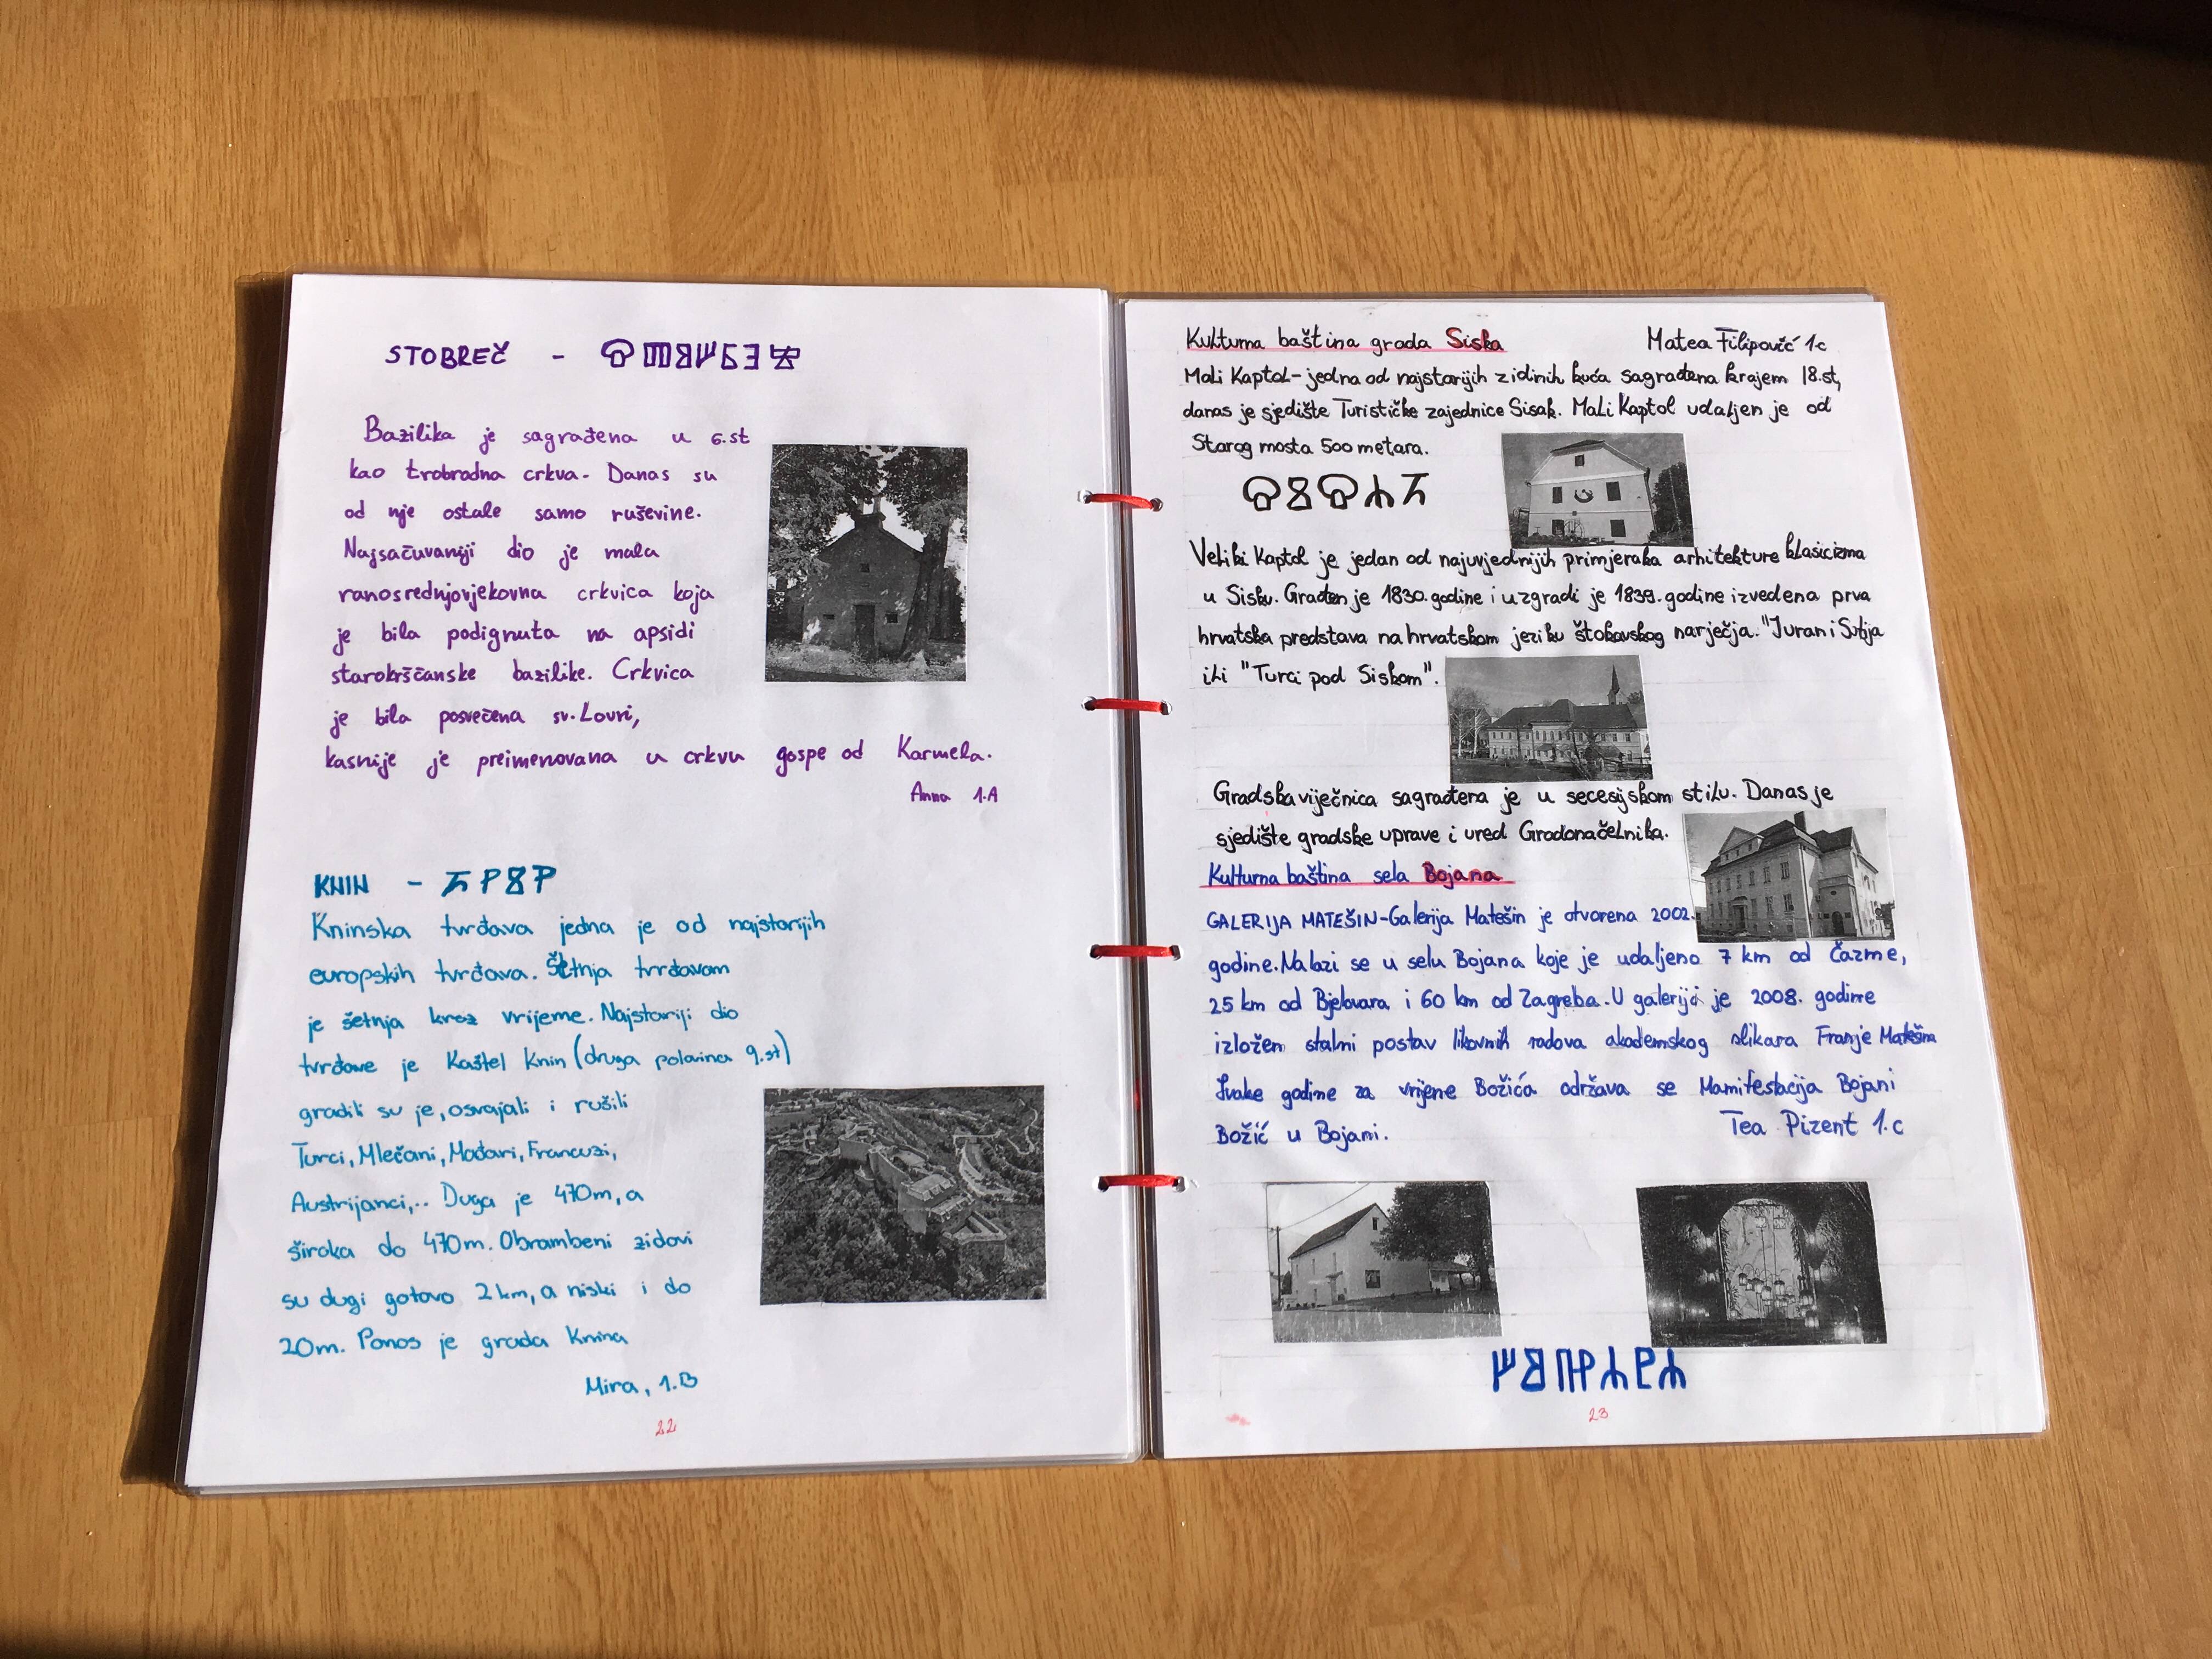 STOBREČ - ⰔⰕⰑⰁⰓⰅⰝ
Bazilika je sagrađena u 6.st
kao trobrodna crkva. Danas su
od nje ostale samo ruševine.
Najsačuvaniji dio je mala
ranosrednjovjekovna crkvica koja
je bila podignuta na apsidi
starokršćanske bazilike. Crkvica
je bila posvećena sv. Lovri,
kasnije je preimenovana u crkvu gospe od Karmela.
Anna 1.A
KNIN - ⰍⰐⰋⰐ
Kninska tvrđava jedna je od najstarijih
europskih tvrđava. Šetnja tvrđavom
je šetnja kroz vrijeme. Najstariji dio
tvrđave je Kaštel Knin (druga polovina 9.st)
gradili su je, osvajali i rušili
Turci, Mlečani, Mađari, Francuzi,
Austrijanci,.. Duga je 470m, a
široka do 470m. Obrambeni zidovi
su dugi gotovo 2 km, a niski i do
20m. Ponos je grada Knina
Mira, 1.B
22
Kulturna baština grada Siska Matea Filipović 1.c
Mali Kaptol - jedna od najstarijih zidinih kuća sagrađena krajem 18.st,
danas je sjedište Turističke zajednice Sisak. Mali Kaptol udaljen je od
Starog mosta 500 metara.
ⰔⰋⰔⰀⰍ
Veliki Kaptol je jedan od najuvjednijih primjeraka arhitekture klasicizma
u Sisku. Građen je 1830. godine i u zgradi je 1839. godine izvedena prva
hrvatska predstava na hrvatskom jeziku štokavskog narječja. "Juran i Sofija
ili "Turci pod Siskom".
Gradska viječnica sagrađena je u secesijskom stilu. Danas je
sjedište gradske uprave i ured Gradonačelnika.
Kulturna baština sela Bojana
GALERIJA MATEŠIN - Galerija Matešin je otvorena 2002.
godine. Nalazi se u selu Bojana koje je udaljeno 7 km od Čazme,
25 km od Bjelovara i 60 km od Zagreba. U galeriji je 2008. godine
izložen stalni postav likovnih radova akademskog slikara Franje Matešina
Svake godine za vrijeme Božića održava se Manifestacija Bojani
Božić u Bojani. Tea Pizent 1.c
ⰁⰑⰉⰀⰐⰀ
23